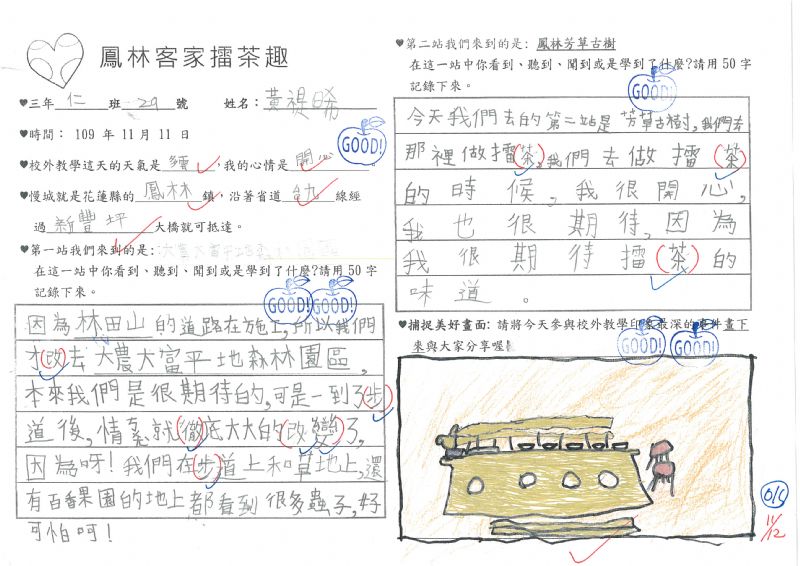 鳳林客家擂茶趣
♥三年仁班29號 姓名:黃禔晞
♥時間: 109 年 11 月 11 日
GOOD!
♥校外教學這天的天氣是  ,我的心情是開心
♥慢城就是花蓮縣的鳳林鎮,沿著省道台九線經
過新豐坪大橋就可抵達。
♥第一站我們來到的是:大農大富平地森林園區
在這一站中你看到、聽到、聞到或是學到了什麼?請用 50 字
記錄下來。
GOOD! GOOD!
因為林田山的道路在施工,所以我們
才(改)去大農大富平地森林園區,
本來我們是很期待的,可是一到了(步)
道後,情緒就(徹)底大大的(改變)了,
因為呀!我們在(步)道上和草地上,還
有百香果園的地上都看到很多蟲子,好
可怕呵!
♥第二站我們來到的是: 鳳林芳草古樹
在這一站中你看到、聽到、聞到或是學到了什麼?請用 50 字
記錄下來。
GOOD!
今天我們去的第二站是芳草古樹,我們去
那裡做擂(茶),我們去做擂(茶)
的時候,我很開心,
我也很期待,因為
我很期待擂(茶)的
味道。
♥捕捉美好畫面: 請將今天參與校外教學印象最深的事件畫下
來與大家分享喔
GOOD! GOOD!
11/12